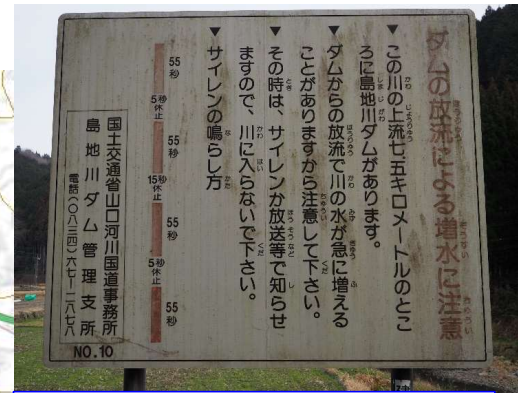 ダムの放流による増水に注意
▼この川の上流七.五キロメートルのとこ
ろに島地川ダムがあります。
▼ダムからの放流で川の水が急に増える
ことがありますから注意して下さい。
▼その時は、サイレンか放送等で知らせ
ますので、川に入らないで下さい。
▼サイレンの鳴らし方
55秒
5秒休止
55秒
15秒休止
55秒
5秒休止
55秒
国土交通省山口河川国道事務所
島地川ダム管理支所
電話(〇八三四)六七ー二八七八
NO.10